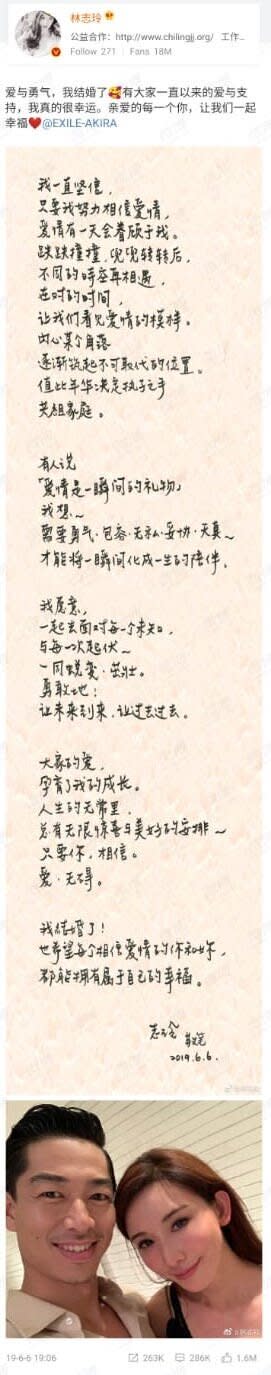 林志玲
公益合作：http://www.chilingjj.org/ 工作...
Follow 271 | Fans 18M
爱与勇气，我结婚了🥰有大家一直以来的爱与支
持，我真的很幸运。亲爱的每一个你，让我们一起
幸福❤️@EXILE-AKIRA
我一直坚信，
只要我努力相信爱情，
爱情有一天会眷顾于我。
跌跌撞撞，兜兜转转后，
不同的时空再相遇，
在对的时间，
让我们看见爱情的模样。
内心某个角落
逐渐筑起不可取代的位置。
值此年华决定执子之手
共组家庭。
有人说
「爱情是一瞬间的礼物」
我想～
需要勇气·包容·无私·妥协·天真～
才能将一瞬间化成一生的陪伴。
我愿意，
一起去面对每一个未知，
与每一次起伏～
一同蜕变·茁壮。
勇敢地：
让未来到来，让过去过去。
大家的爱，
孕育了我的成长。
人生的无常里，
总有无限惊喜与美好的安排～
只要你，相信。
爱·无碍。
我结婚了！
也希望每个相信爱情的你和妳，
都能拥有属于自己的幸福。
志玲
2019.6.6.
19-6-6 19:06
263K
286K
1.6M